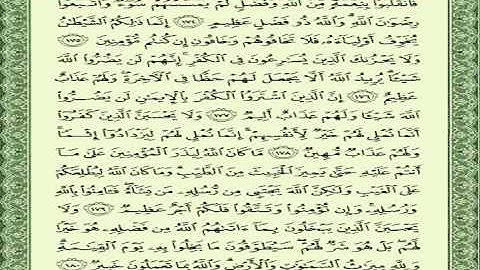 فَٱنقَلَبُوا۟ بِنِعْمَةٍ مِّنَ ٱللَّهِ وَفَضْلٍ لَّمْ يَمْسَسْهُمْ سُوٓءٌ وَٱتَّبَعُوا۟
رِضْوَٰنَ ٱللَّهِ وَٱللَّهُ ذُو فَضْلٍ عَظِيمٍ ١٧٤ إِنَّمَا ذَٰلِكُمُ ٱلشَّيْطَٰنُ
يُخَوِّفُ أَوْلِيَآءَهُۥ فَلَا تَخَافُوهُمْ وَخَافُونِ إِن كُنتُم مُّؤْمِنِينَ ١٧٥
وَلَا يَحْزُنكَ ٱلَّذِينَ يُسَٰرِعُونَ فِى ٱلْكُفْرِ إِنَّهُمْ لَن يَضُرُّوا۟ ٱللَّهَ
شَيْـًٔا يُرِيدُ ٱللَّهُ أَلَّا يَجْعَلَ لَهُمْ حَظًّا فِى ٱلْـَٔاخِرَةِ وَلَهُمْ عَذَابٌ
عَظِيمٌ ١٧٦ إِنَّ ٱلَّذِينَ ٱشْتَرَوُا۟ ٱلْكُفْرَ بِٱلْإِيمَٰنِ لَن يَضُرُّوا۟
ٱللَّهَ شَيْـًٔا وَلَهُمْ عَذَابٌ أَلِيمٌ ١٧٧ وَلَا يَحْسَبَنَّ ٱلَّذِينَ كَفَرُوٓا۟
أَنَّمَا نُمْلِى لَهُمْ خَيْرٌ لِّأَنفُسِهِمْ إِنَّمَا نُمْلِى لَهُمْ لِيَزْدَادُوٓا۟ إِثْمًا
وَلَهُمْ عَذَابٌ مُّهِينٌ ١٧٨ مَّا كَانَ ٱللَّهُ لِيَذَرَ ٱلْمُؤْمِنِينَ عَلَىٰ مَآ
أَنتُمْ عَلَيْهِ حَتَّىٰ يَمِيزَ ٱلْخَبِيثَ مِنَ ٱلطَّيِّبِ وَمَا كَانَ ٱللَّهُ لِيُطْلِعَكُمْ
عَلَى ٱلْغَيْبِ وَلَٰكِنَّ ٱللَّهَ يَجْتَبِى مِن رُّسُلِهِۦ مَن يَشَآءُ فَـَٔامِنُوا۟ بِٱللَّهِ
وَرُسُلِهِۦ وَإِن تُؤْمِنُوا۟ وَتَتَّقُوا۟ فَلَكُمْ أَجْرٌ عَظِيمٌ ١٧٩ وَلَا
يَحْسَبَنَّ ٱلَّذِينَ يَبْخَلُونَ بِمَآ ءَاتَىٰهُمُ ٱللَّهُ مِن فَضْلِهِۦ هُوَ خَيْرًا
لَّهُم بَلْ هُوَ شَرٌّ لَّهُمْ سَيُطَوَّقُونَ مَا بَخِلُوا۟ بِهِۦ يَوْمَ ٱلْقِيَٰمَةِ
وَلِلَّهِ مِيرَٰثُ ٱلسَّمَٰوَٰتِ وَٱلْأَرْضِ وَٱللَّهُ بِمَا تَعْمَلُونَ خَبِيرٌ ١٨٠